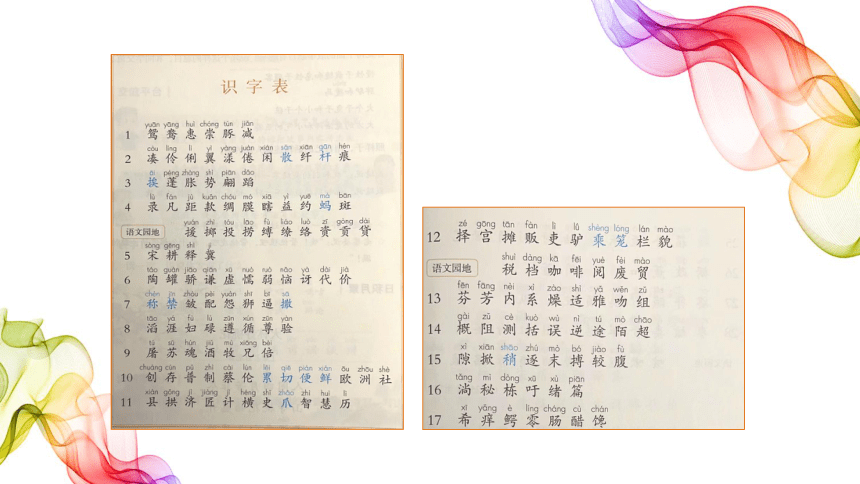 识字表
yuān yāng huì chóng tún jiǎn
1 鸳 鸯 惠 崇 豚 减
còu líng lì yì yàng juàn xián sǎn xiān gān hén
2 凑 伶 俐 翼 漾 倦 闲 散 纤 杆 痕
āi péng zhàng shì piān dǎo
3 挨 蓬 胀 势 翩 蹈
lù fán jù kuǎn chóu mó xiā yì yuē mǎ bān
4 录 凡 距 款 绸 膜 瞎 益 约 蚂 斑
yuán zhì tóu lāo fù liáo luò zī gòng dài
语文园地 援 掷 投 捞 缚 缭 络 资 贡 贷
sòng gēng shì jì
5 宋 耕 释 冀
táo guàn jiāo qiān xū nuò ruò nǎo yà dài jià
6 陶 罐 骄 谦 虚 懦 弱 恼 讶 代 价
chèn jīn zhòu pèi yuàn shī bī sā
7 称 禁 皱 配 怨 狮 逼 撒
tāo yá fù lù zūn xún zūn yàn
8 滔 涯 妇 碌 遵 循 尊 验
tú sū hún jiǔ mù xiōng bèi
9 屠 苏 魂 酒 牧 兄 倍
chuàng cún pǔ zhì cài lún lěi qiē pián xiān ōu zhōu shè
10 创 存 普 制 蔡 伦 累 切 便 鲜 欧 洲 社
xiàn gǒng jì jiàng jì héng shǐ zhǎo zhì huì lì
11 县 拱 济 匠 计 横 史 爪 智 慧 历
zé gōng tān fàn lì lǘ shèng lóng lán mào
12 择 宫 摊 贩 吏 驴 乘 笼 栏 貌
shuì dàng kā fēi yuè fèi mào
语文园地 税 档 咖 啡 阅 废 贸
fēn fāng nèi xì zào shì yǎ wěn zǔ
13 芬 芳 内 系 燥 适 雅 吻 组
gài zǔ cè kuò wù nì tú mò chāo
14 概 阻 测 括 误 逆 途 陌 超
xì xiān shāo zhú mò bó jiào fù
15 隙 掀 稍 逐 末 搏 较 腹
tǎng mì dòng xū xù piān
16 淌 秘 栋 吁 绪 篇
xī yǎng è líng cháng cù chán
17 希 痒 鳄 零 肠 醋 馋